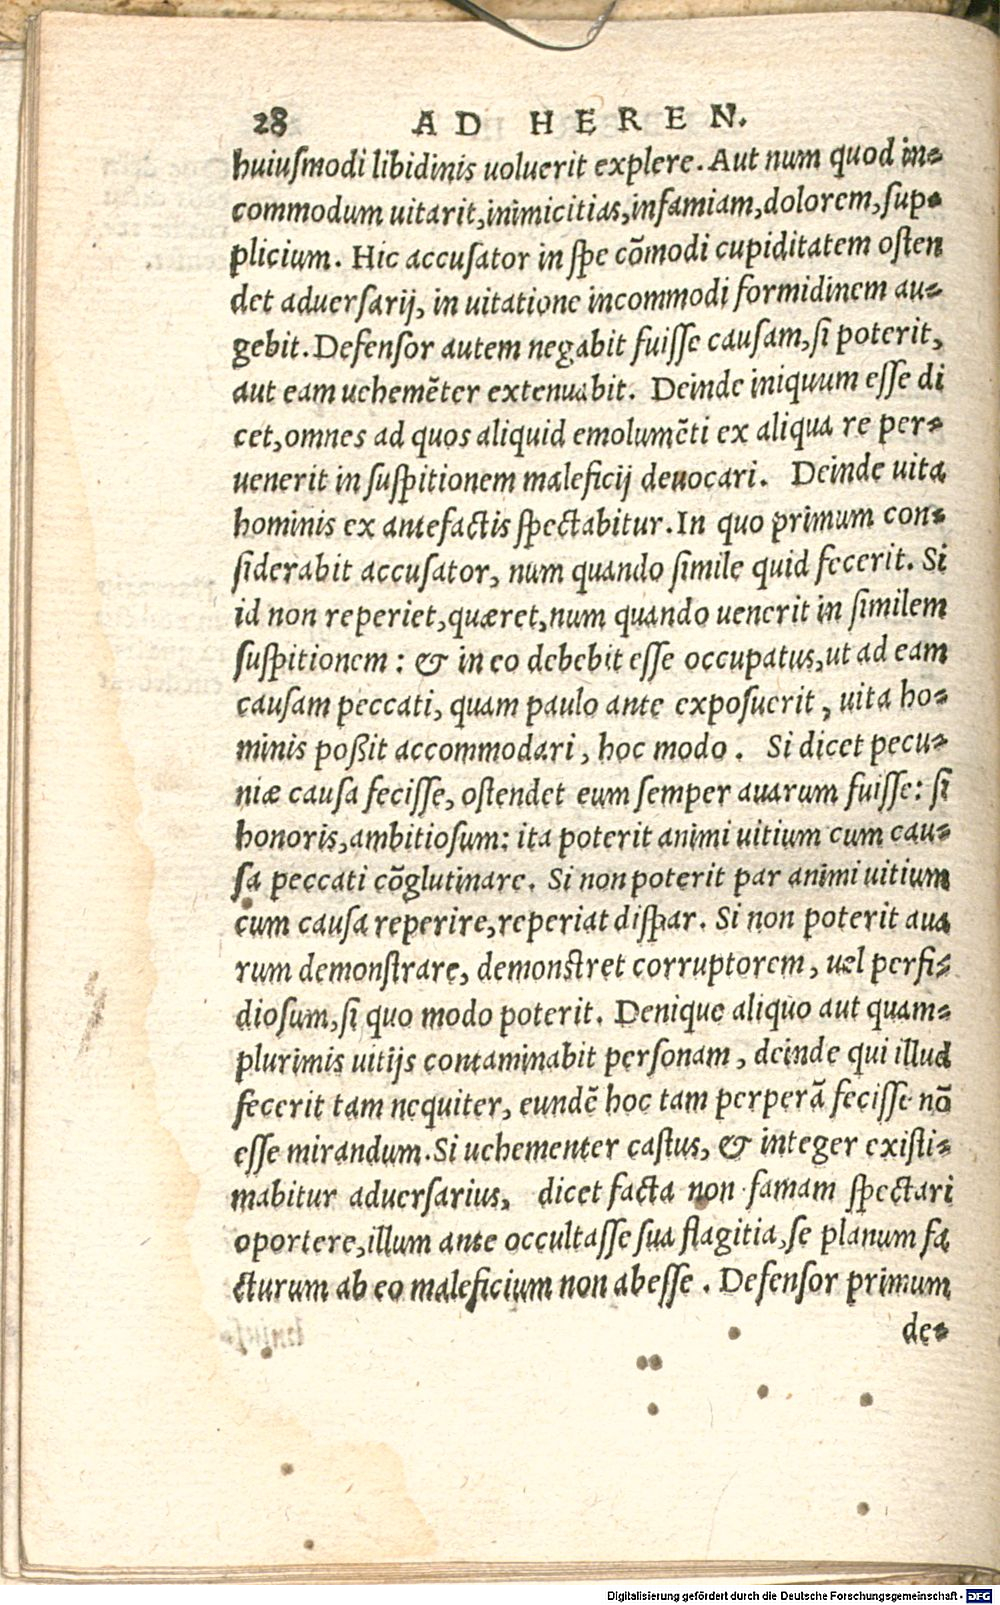 28 AD HEREN.
huiuſmodi libidinis uoluerit explere. Aut num quod in-
commodum uitarit, inimicitias, infamiam, dolorem, ſup-
plicium. Hic accuſator in ſpe cõmodi cupiditatem oſten
det aduerſarij, in uitatione incommodi formidinem au-
gebit. Defenſor autem negabit fuiſſe cauſam, ſi poterit,
aut eam uehemẽter extenuabit. Deinde iniquum eſſe di
cet, omnes ad quos aliquid emolumẽti ex aliqua re per-
uenerit in ſuſpitionem maleficij deuocari. Deinde uita
hominis ex antefactis ſpectabitur. In quo primum con-
ſiderabit accuſator, num quando ſimile quid fecerit. Si
id non reperiet, quæret, num quando uenerit in ſimilem
ſuſpitionem: & in eo debebit eſſe occupatus, ut ad eam
cauſam peccati, quam paulo ante expoſuerit, uita ho-
minis poßit accommodari, hoc modo. Si dicet pecu-
niæ cauſa feciſſe, oſtendet eum ſemper auarum fuiſſe: ſi
honoris, ambitioſum: ita poterit animi uitium cum cau-
ſa peccati cõglutinare. Si non poterit par animi uitium
cum cauſa reperire, reperiat diſpar. Si non poterit aua
rum demonſtrare, demonſtret corruptorem, uel perfi-
dioſum, ſi quo modo poterit. Denique aliquo aut quam-
plurimis uitijs contaminabit perſonam, deinde qui illud
fecerit tam nequiter, eundẽ hoc tam perperã feciſſe nõ
eſſe mirandum. Si uehementer caſtus, & integer exiſti-
mabitur aduerſarius, dicet facta non famam ſpectari
oportere, illum ante occultaſſe ſua flagitia, ſe planum fa
cturum ab eo maleficium non abeſſe. Defenſor primum
de-
Digitalisierung gefördert durch die Deutsche Forschungsgemeinschaft - DFG